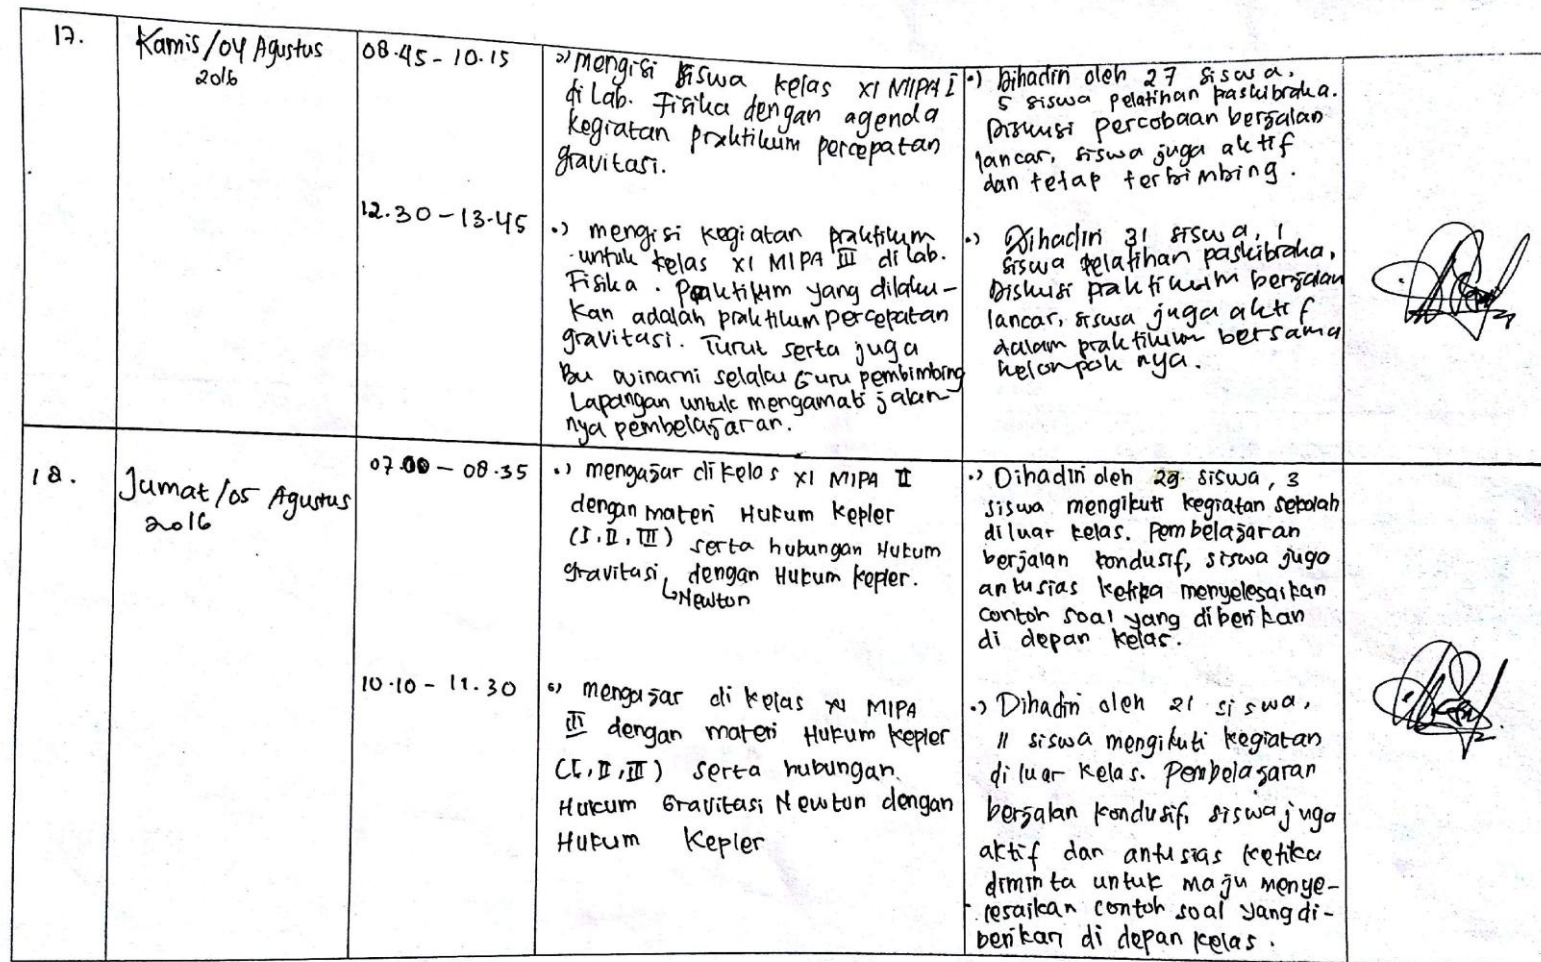 17.
Kamis/04 Agustus
2016
08.45 - 10.15
•) mengisi siswa kelas XI MIPA I
di Lab. Fisika dengan agenda
kegiatan praktikum percepatan
gravitasi.
•) Dihadiri oleh 27 siswa,
5 siswa pelatihan paskibraka.
Diskusi percobaan berjalan
lancar, siswa juga aktif
dan tetap terbimbing.
12.30 - 13.45
•) mengisi kegiatan praktikum
untuk kelas XI MIPA III di lab.
Fisika. Praktikum yang dilaku-
kan adalah praktikum percepatan
gravitasi. Turut serta juga
Bu Winarni selaku Guru pembimbing
Lapangan untuk mengamati jalan-
nya pembelajaran.
•) Dihadiri 31 siswa, 1
siswa pelatihan paskibraka,
Diskusi praktikum berjalan
lancar, siswa juga aktif
dalam praktikum bersama
kelompoknya.
18.
Jumat/05 Agustus
2016
07.00 - 08.35
•) mengajar di kelas XI MIPA II
dengan materi Hukum Kepler
(I, II, III) serta hubungan Hukum
gravitasi dengan Hukum Kepler.
Newton
•) Dihadiri oleh 29 siswa, 3
siswa mengikuti kegiatan sekolah
diluar kelas. Pembelajaran
berjalan kondusif, siswa juga
antusias ketika menyelesaikan
contoh soal yang diberikan
di depan kelas.
10.10 - 11.30
•) mengajar di kelas XI MIPA
III dengan materi Hukum Kepler
(I, II, III) serta hubungan
Hukum Gravitasi Newton dengan
Hukum Kepler
•) Dihadiri oleh 21 siswa,
11 siswa mengikuti kegiatan
diluar kelas. Pembelajaran
berjalan kondusif, siswa juga
aktif dan antusias ketika
diminta untuk maju menye-
lesaikan contoh soal yang di-
berikan di depan kelas.